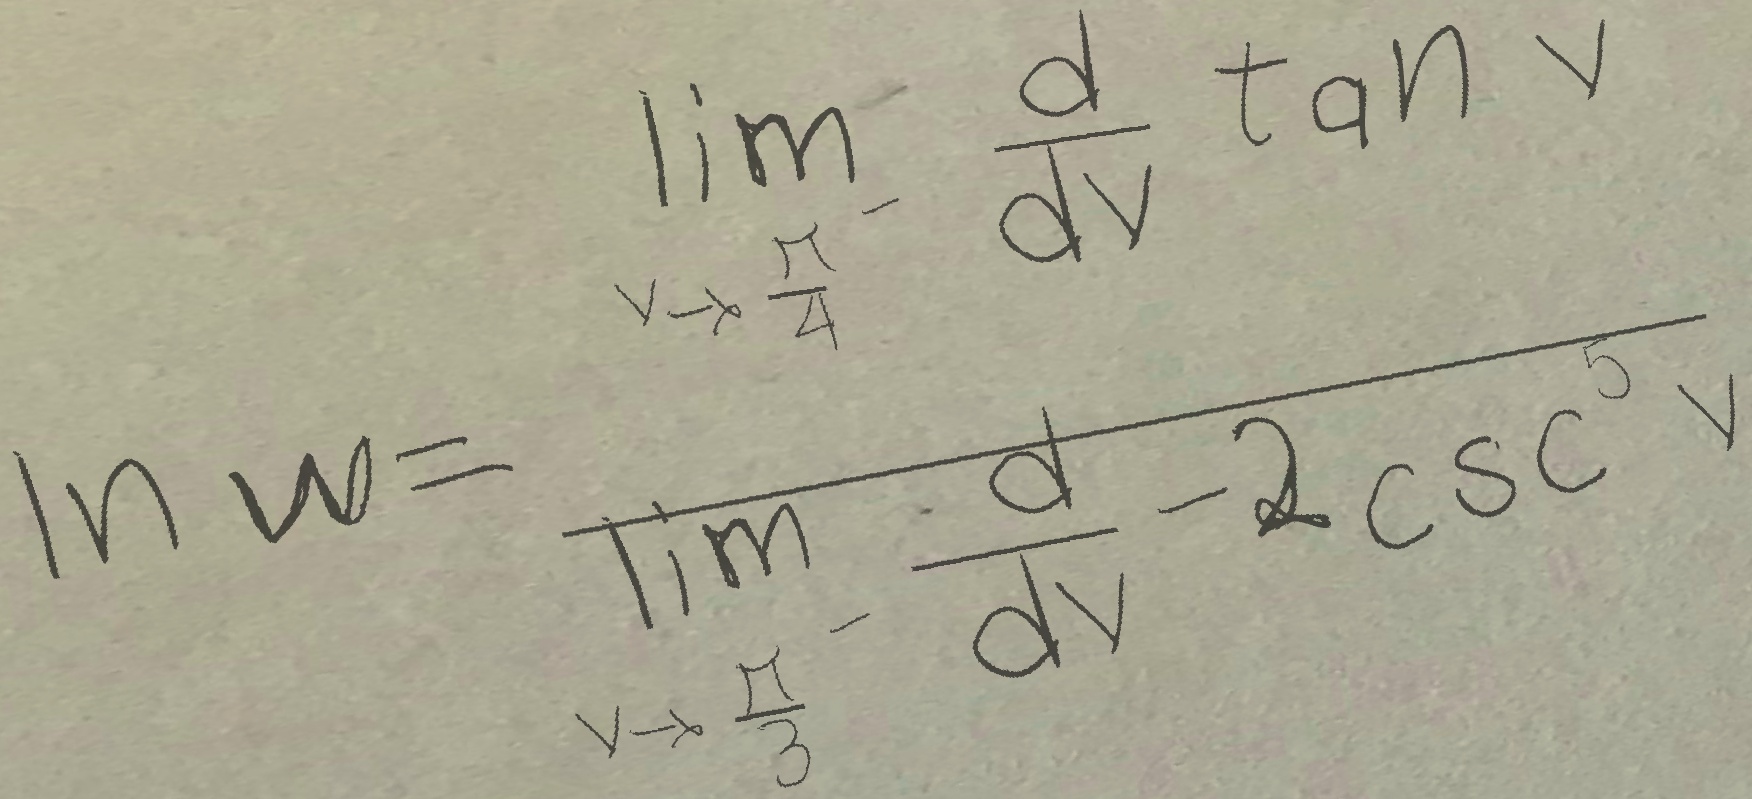 \ln w = \frac{\lim_{v \to \frac{\pi}{4}^{-}} \frac{d}{dv} \tan v}{\lim_{v \to \frac{\pi}{3}^{-}} \frac{d}{dv} -2 \csc^{5} v}